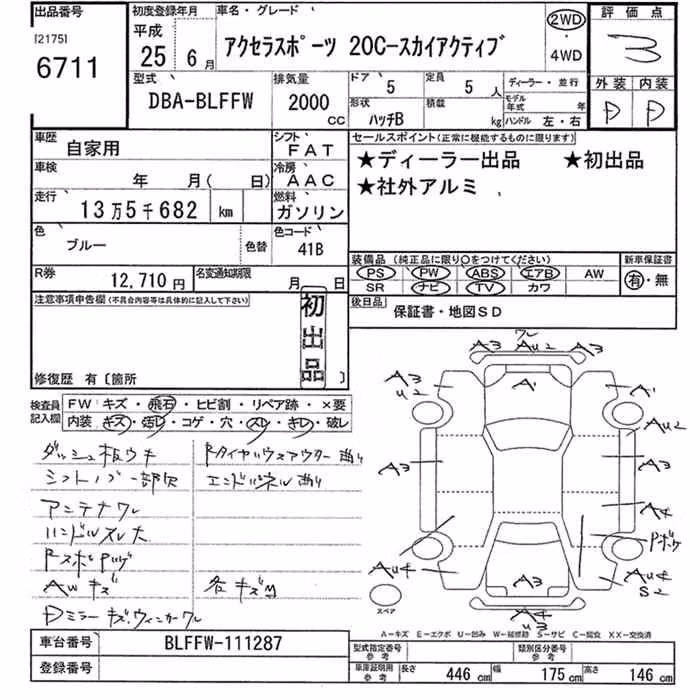 出品番号
[2175]
6711
初度登録年月
平成
25年 6月
車名・グレード
アクセラスポーツ 20C-スカイアクティブ
2WD
・
4WD
評価点
3
外装 内装
D D
型式
DBA-BLFFW
排気量
2000 CC
ドア 5
定員 5人
形状 ハッチB
積載 kg
ディーラー・並行
モデル年式 年
ハンドル 左・右
車歴 自家用
シフト FAT
車検 年 月( 日)
冷房 AAC
走行 13万5千682 km
燃料 ガソリン
色 ブルー 色替
色コード 41B
R券 12,710円
名変通知期限 月 日
セールスポイント(正常に機能するものに限ります)
★ディーラー出品 ★初出品
★社外アルミ
装備品(純正品に限り○をつけてください)
PS PW ABS エアB AW
SR ナビ TV カワ
新車保証書
有・無
後日品 保証書・地図SD
注意事項申告欄(不具合内容等は具体的に記入して下さい)
初出品
修復歴 有〔箇所 〕
検査員記入欄
FW キズ・飛石・ヒビ割・リペア跡・×要
内装 キズ・汚レ・コゲ・穴・スレ・キレ・破レ
ダッシュ板ウキ
シフトノブ一部欠
アンテナワレ
ハンドルスレ大
AWキズ
各キズ
Dミラーキズ、ウィンカーワレ
エンドパネル曲り
ワレ
A3 AU2 A3
A3 U2
A1
A1
AU2
A3
A3
A4
AU4
A3
AU4
S2
A4
U3
スペア
A-キズ E-エクボ U-凹み W-補修跡 S-サビ C-腐食 XX-交換済
車台番号 BLFFW-111287
登録番号
型式指定番号 参考
類別区分番号 参考
車庫証明用 参考
長さ 446cm 幅 175cm 高さ 146cm